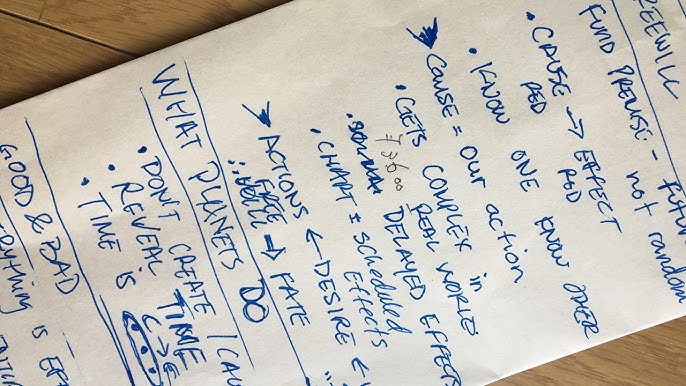 FREEWILL
FUND PREMISE - future
not random
• CAUSE → EFFECT
RED RED
• KNOW ONE KNOW OTHER
CAUSE = OUR action
• GETS COMPLEX in
REAL WORLD
DELAYED EFFECTS
• CHART = scheduled
Effects
ACTIONS ← DESIRE ←
FREE → FATE
WHAT PLANETS DO
• DON'T CREATE / CAU
• REVEAL TIME
• TIME IS
GOOD & BAD
EVERYTHING IS